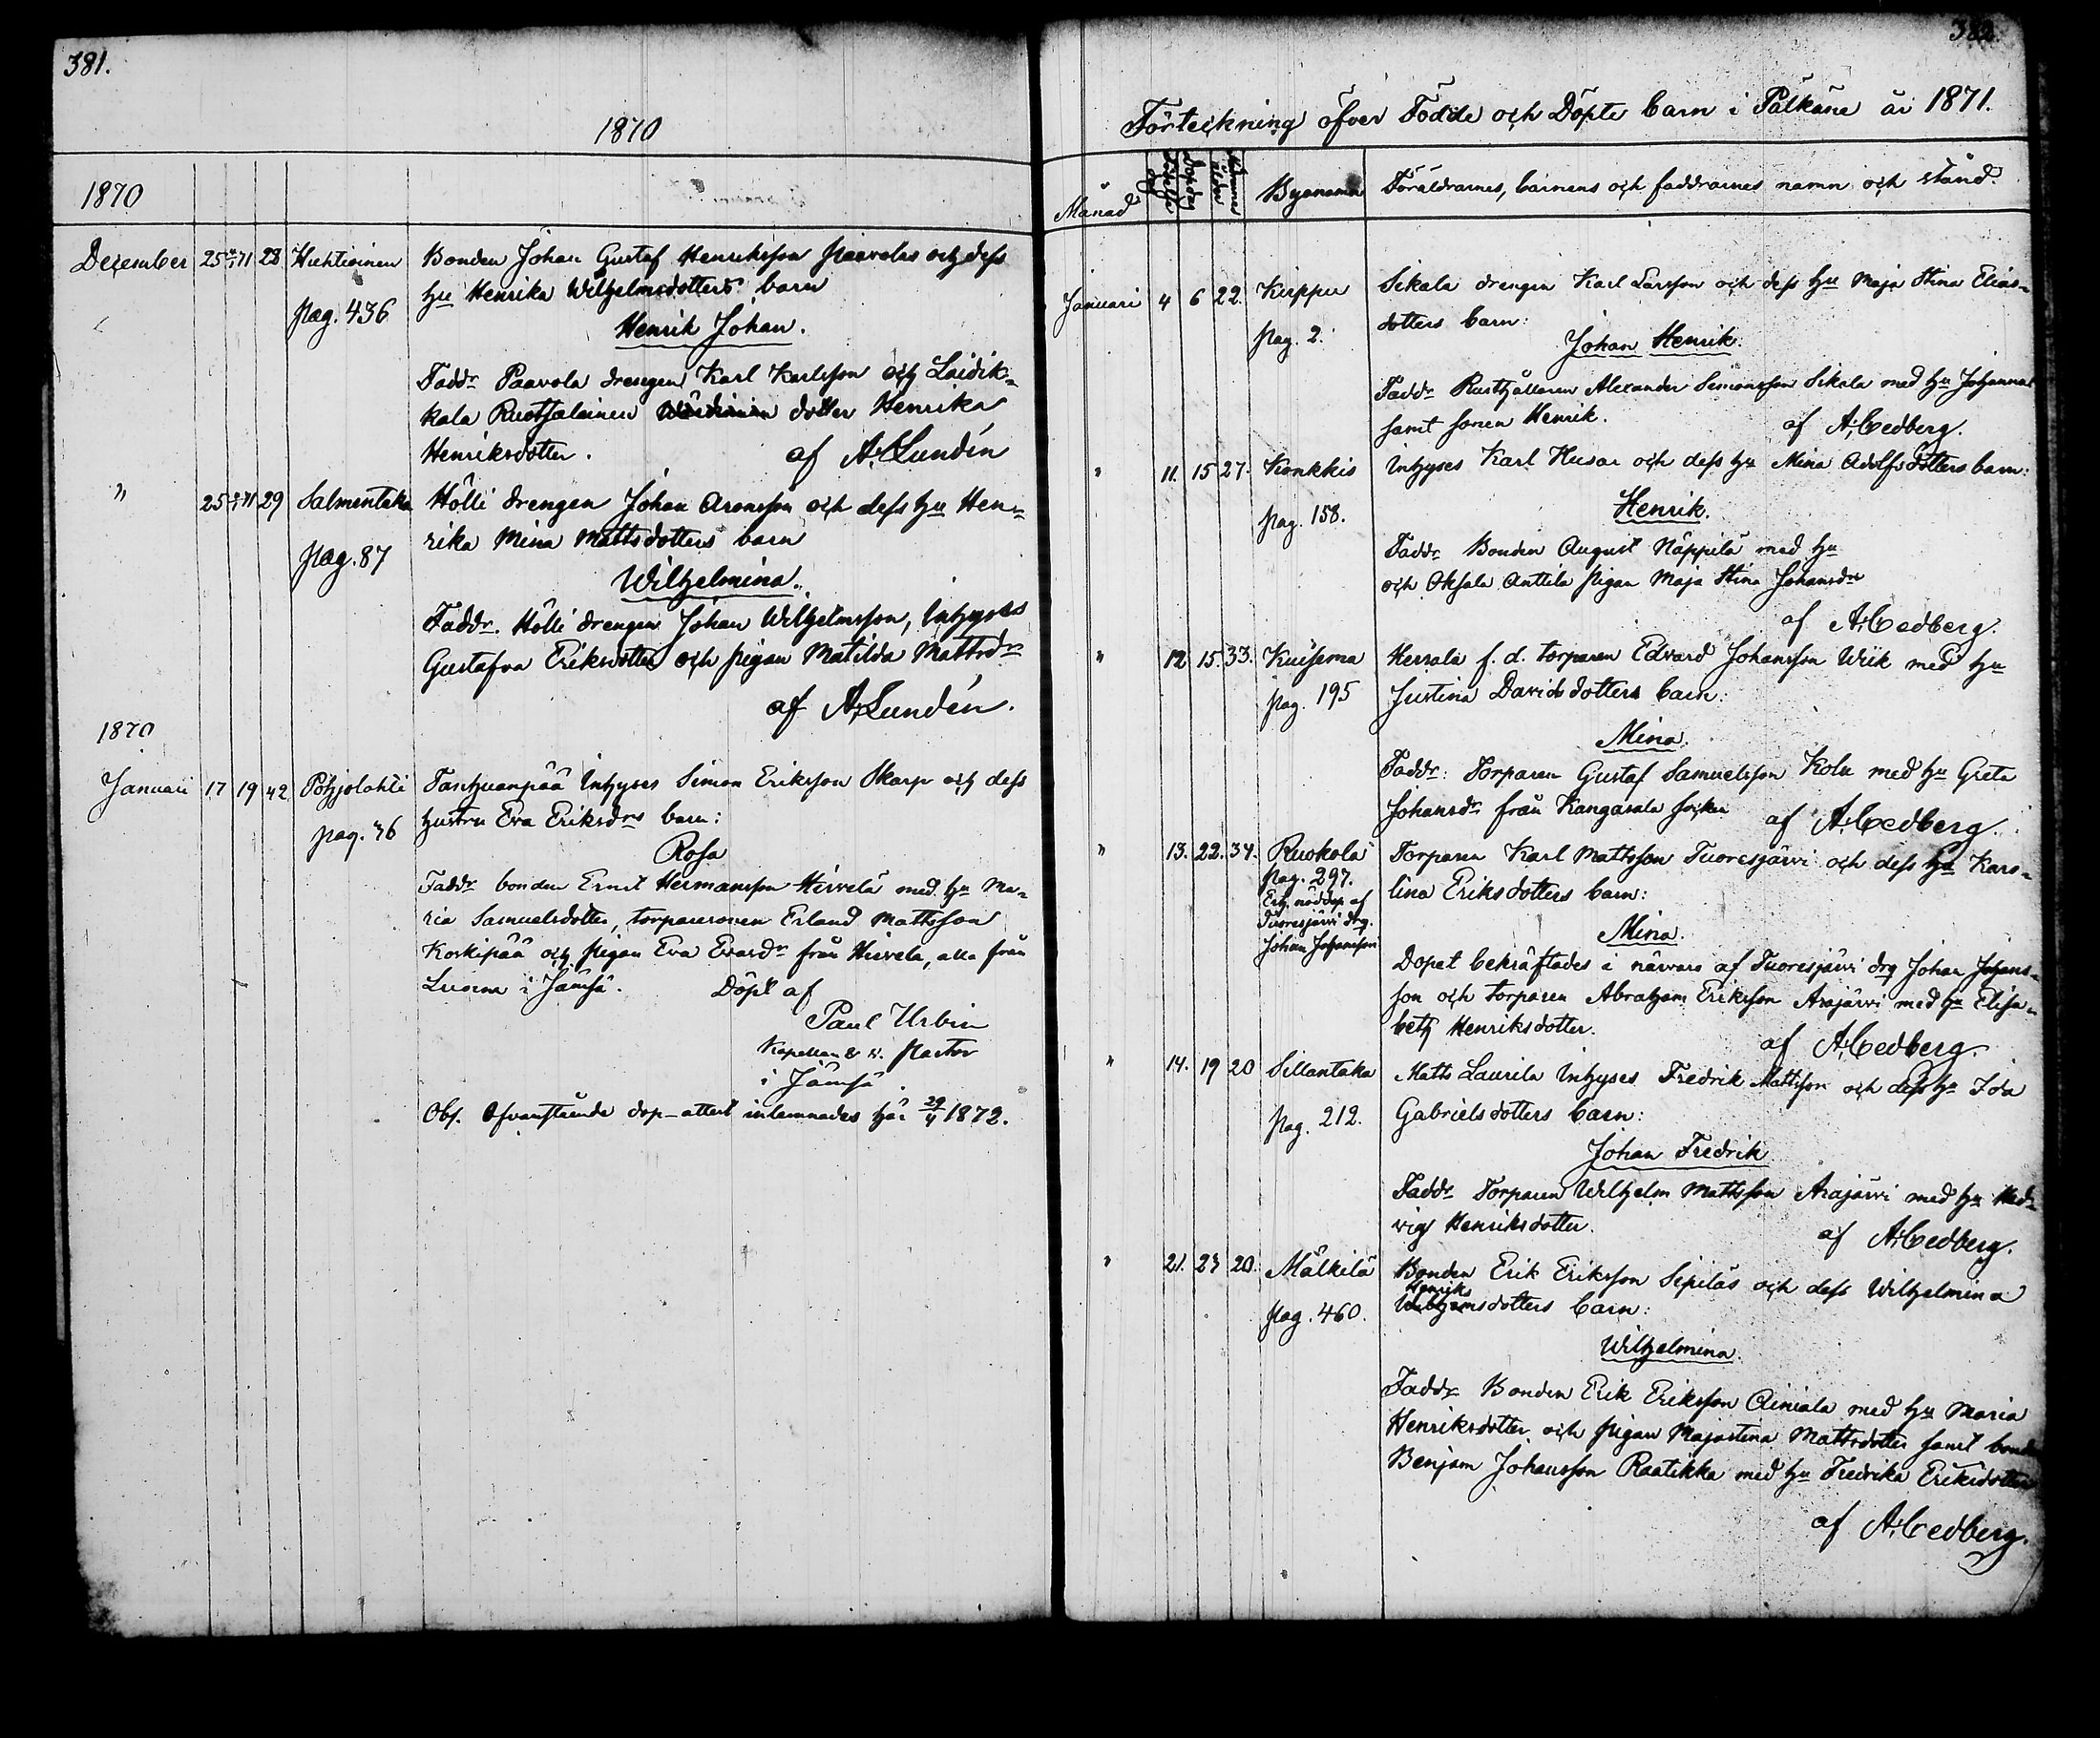 381.
1870
1870
December 25 71 28 Huhtioinen Bonden Johan Gustaf Henriksson Paavolas och dess
pag. 436 hu Henrika Wilhelmsdotters barn
Henrik Johan.
Faddr Paavola drengen Karl Karlsson och Laidik=
kala Rusthålainen dotter Henrika
Henriksdotter. af A. Lundén
" 25 71 29 Salmentaka Hölli drengen Johan Aronsson och dess hu Hen=
pag. 87 rika Mina Mattsdotters barn
Wilhelmina.
Faddr. Hölli drengen Johan Wilhelmsson, Inhyses
Gustafva Eriksdotter och pigan Matilda Mattsdr
af A. Lundén.
1870
Januari 17 19 42 Pohjolahti Tanhuanpää Inhyses Simon Eriksson Skarp och dess
pag. 46 hustru Eva Eriksdrs barn:
Rosa
Faddr bonden Ernst Hermansson Hirvelä med hu Ma=
ria Samuelsdotter, torparesonen Erland Mattsson
Koskipää och pigan Eva Evasdr från Hirvelä, alla från
i Jämsä. Döpt af
Paul Urbin
Kapellan & v. Pastor
i Jämsä.
Obs. Ofvanstående dop-attest inlemnades här 29/4 1872.
382.
Förteckning öfver Födde och Döpte barn i Pälkäne år 1871.
Månad Födelse dag Dopdag Moderns ålder Byanamn Föräldrarnes, barnens och faddrarnes namn och stånd.
Januari 4 6 22. Kuppu Sikala drengen Karl Larsson och dess hu Maja Stina Elias=
pag. 2. dotters barn:
Johan Henrik.
Faddr Rusthållaren Alexander Simonsson Sikala med hu Johanna
samt sonen Henrik. af A. Cedberg.
" 11. 15 27. Konkkis Inhyses Karl Husar och dess hu Mina Adolfsdotters barn:
pag. 158. Henrik.
Faddr Bonden August Näppilä med hu
och Oksala Anttila pigan Maja Stina Johansdr
af A. Cedberg.
" 12 15. 33. Kuisema Herrala f. d. torparen Edvard Johansson Wiik med hu
pag. 195 Justina Davidsdotters barn:
Mina.
Faddr: Torparen Gustaf Samuelsson Kolu med hu Greta
Johansdr från Kangasala socken af A. Cedberg.
" 13. 22. 34. Ruokola Torparen Karl Mattsson Tuoresjärvi och dess hu Karo=
pag. 297. lina Eriksdotters barn:
Erh. nöddop af
Tuoresjärvi drg.
Johan Johansson
Mina.
Dopet bekräftades i närvaro af Tuoresjärvi drg Johan Johans=
son och torparen Abraham Eriksson Arajärvi med hu Elisa=
beth Henriksdotter. af A. Cedberg.
" 14. 19 20 Sillantaka Matts Laurila Inhyses Fredrik Mattsson och dess hu Ida
pag. 212. Gabrielsdotters barn:
Johan Fredrik
Faddr Torparen Wilhelm Mattsson Arajärvi med hu Hed=
vig Henriksdotter. af A. Cedberg.
" 21. 23 20. Mälkilä Bonden Erik Eriksson Sipiläs och dess Wilhelmina
pag. 460. Henriksdotters barn:
Wilhelmina.
Faddr Bonden Erik Eriksson Ainiala med hu Maria
Henriksdotter och pigan Majastina Mattsdotter samt bonden
Benjam Johansson Raatikka med hu Fredrika Eriksdotter
af A. Cedberg.